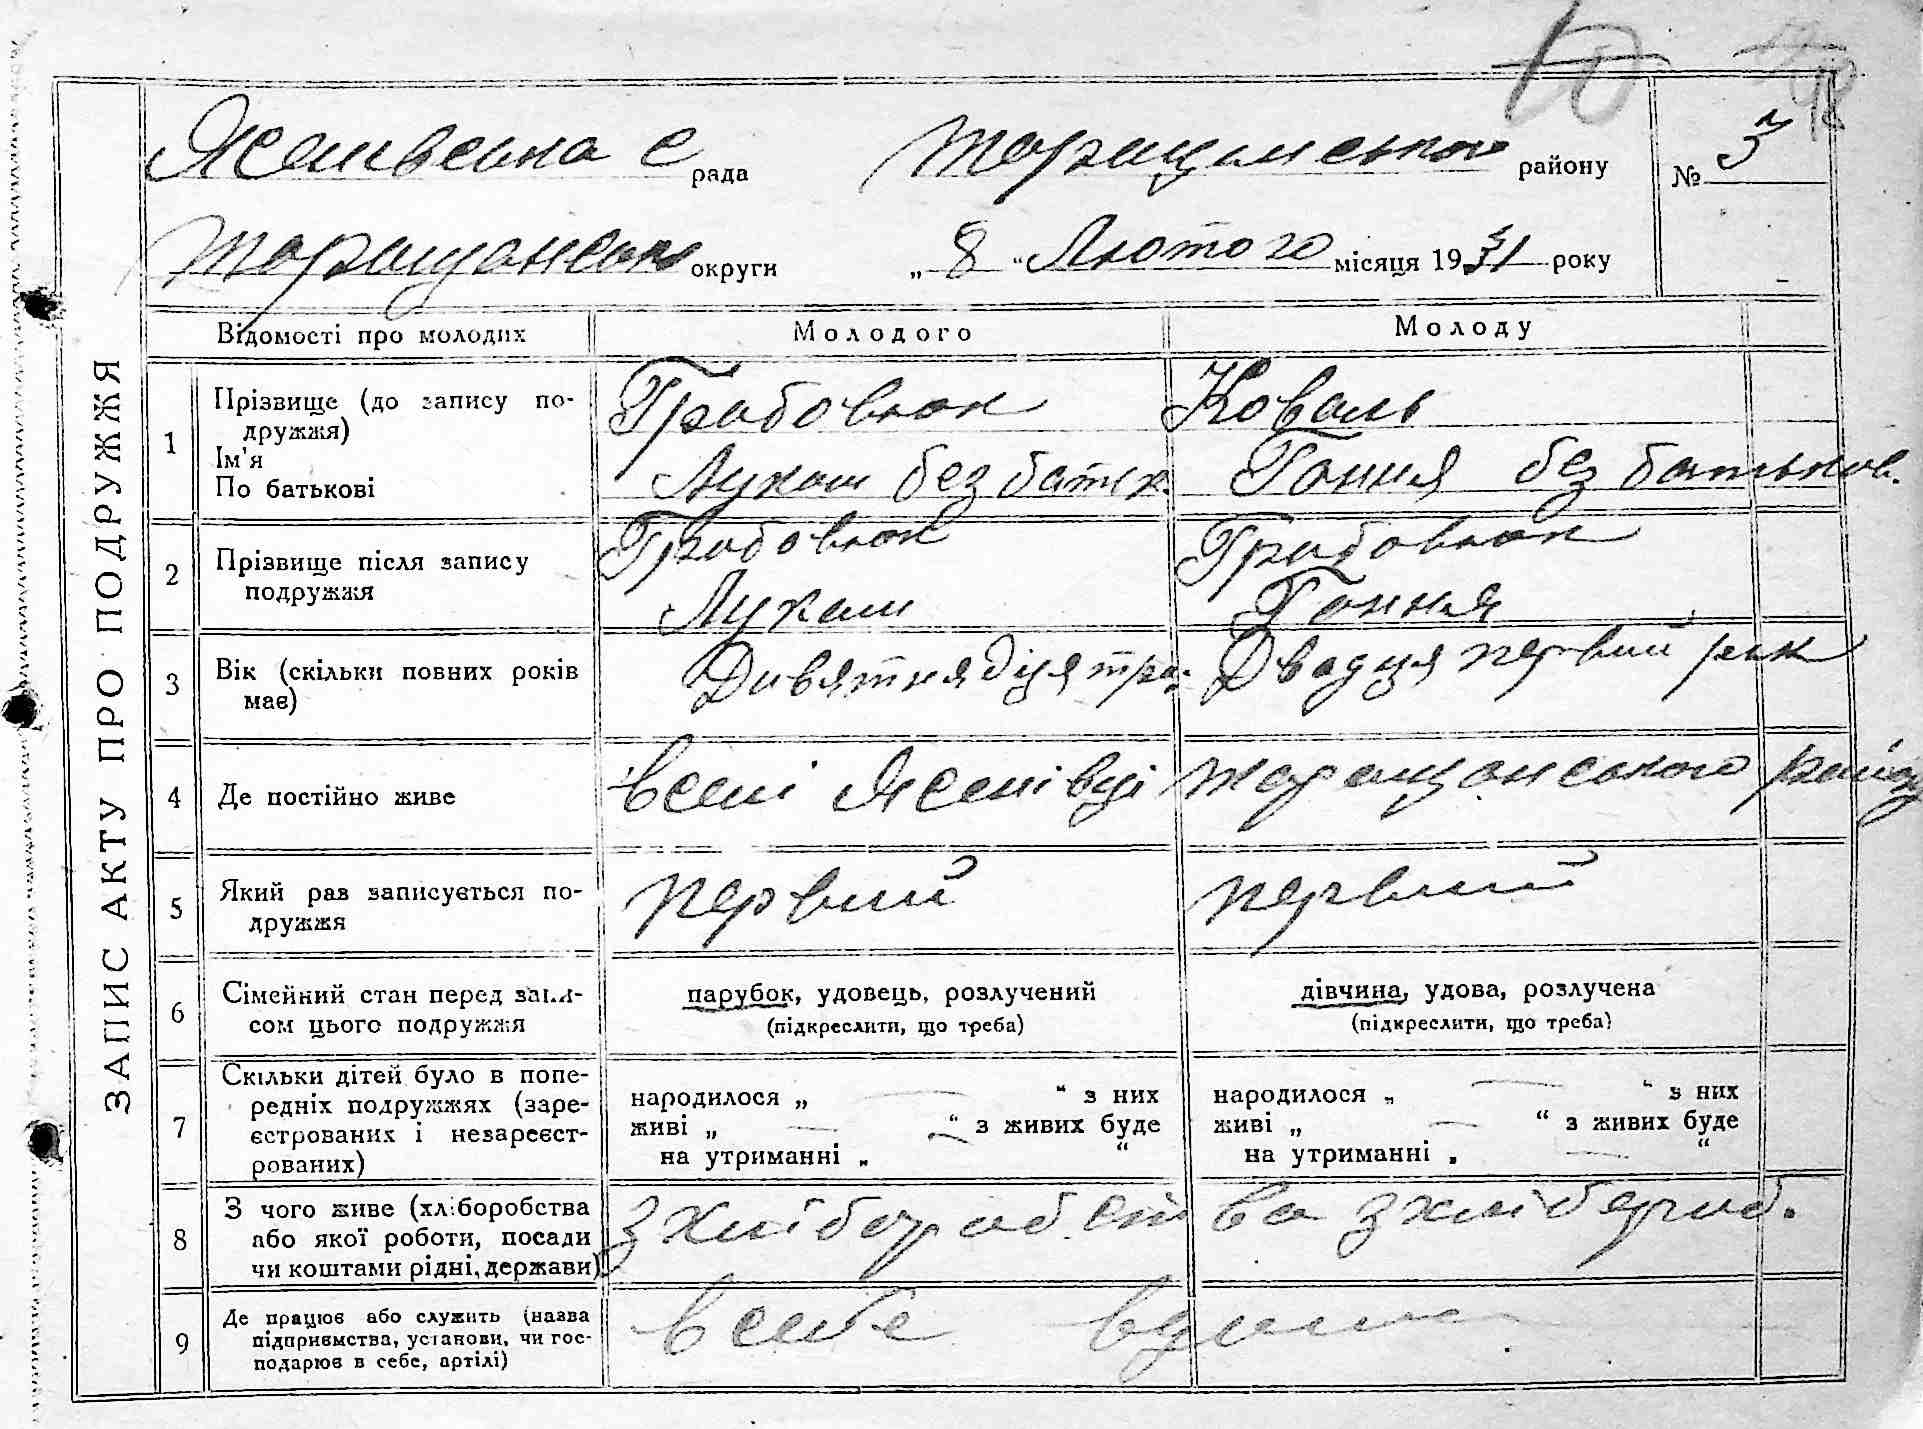 ЗАПИС АКТУ ПРО ПОДРУЖЖЯ
рада Таращанського району № 3
Таращанської округи „ 8 “ Лютого місяця 1931 року
Відомості про молодих Молодого Молоду
1 Прізвище (до запису по- Грабовюк Коваль
дружжя)
Ім'я Лукаш без батьк. Гання без батьков.
По батькові
2 Прізвище після запису Грабовюк Грабовюк
подружжя Лукаш Гання
3 Вік (скільки повних років Двадця первий рик
має)
4 Де постійно живе в селі Ясенівці Таращанського району
5 Який раз записується по- первий первий
дружжя
6 Сімейний стан перед запи- парубок, удовець, розлучений дівчина, удова, розлучена
сом цього подружжя (підкреслити, що треба) (підкреслити, що треба)
7 Скільки дітей було в попе-
редніх подружжях (заре- народилося „ — “ з них народилося „ — “ з них
єстрованих і незареєст- живі „ — “ з живих буде живі „ — “ з живих буде
рованих) на утриманні „ “ на утриманні „ — “
8 З чого живе (хліборобства з хліборобст ва з хлібороб.
або якої роботи, посади
чи коштами рідні, держави)
9 Де працює або служить (назва в себе вдома
підприємства, установи, чи гос-
подарює в себе, артілі)